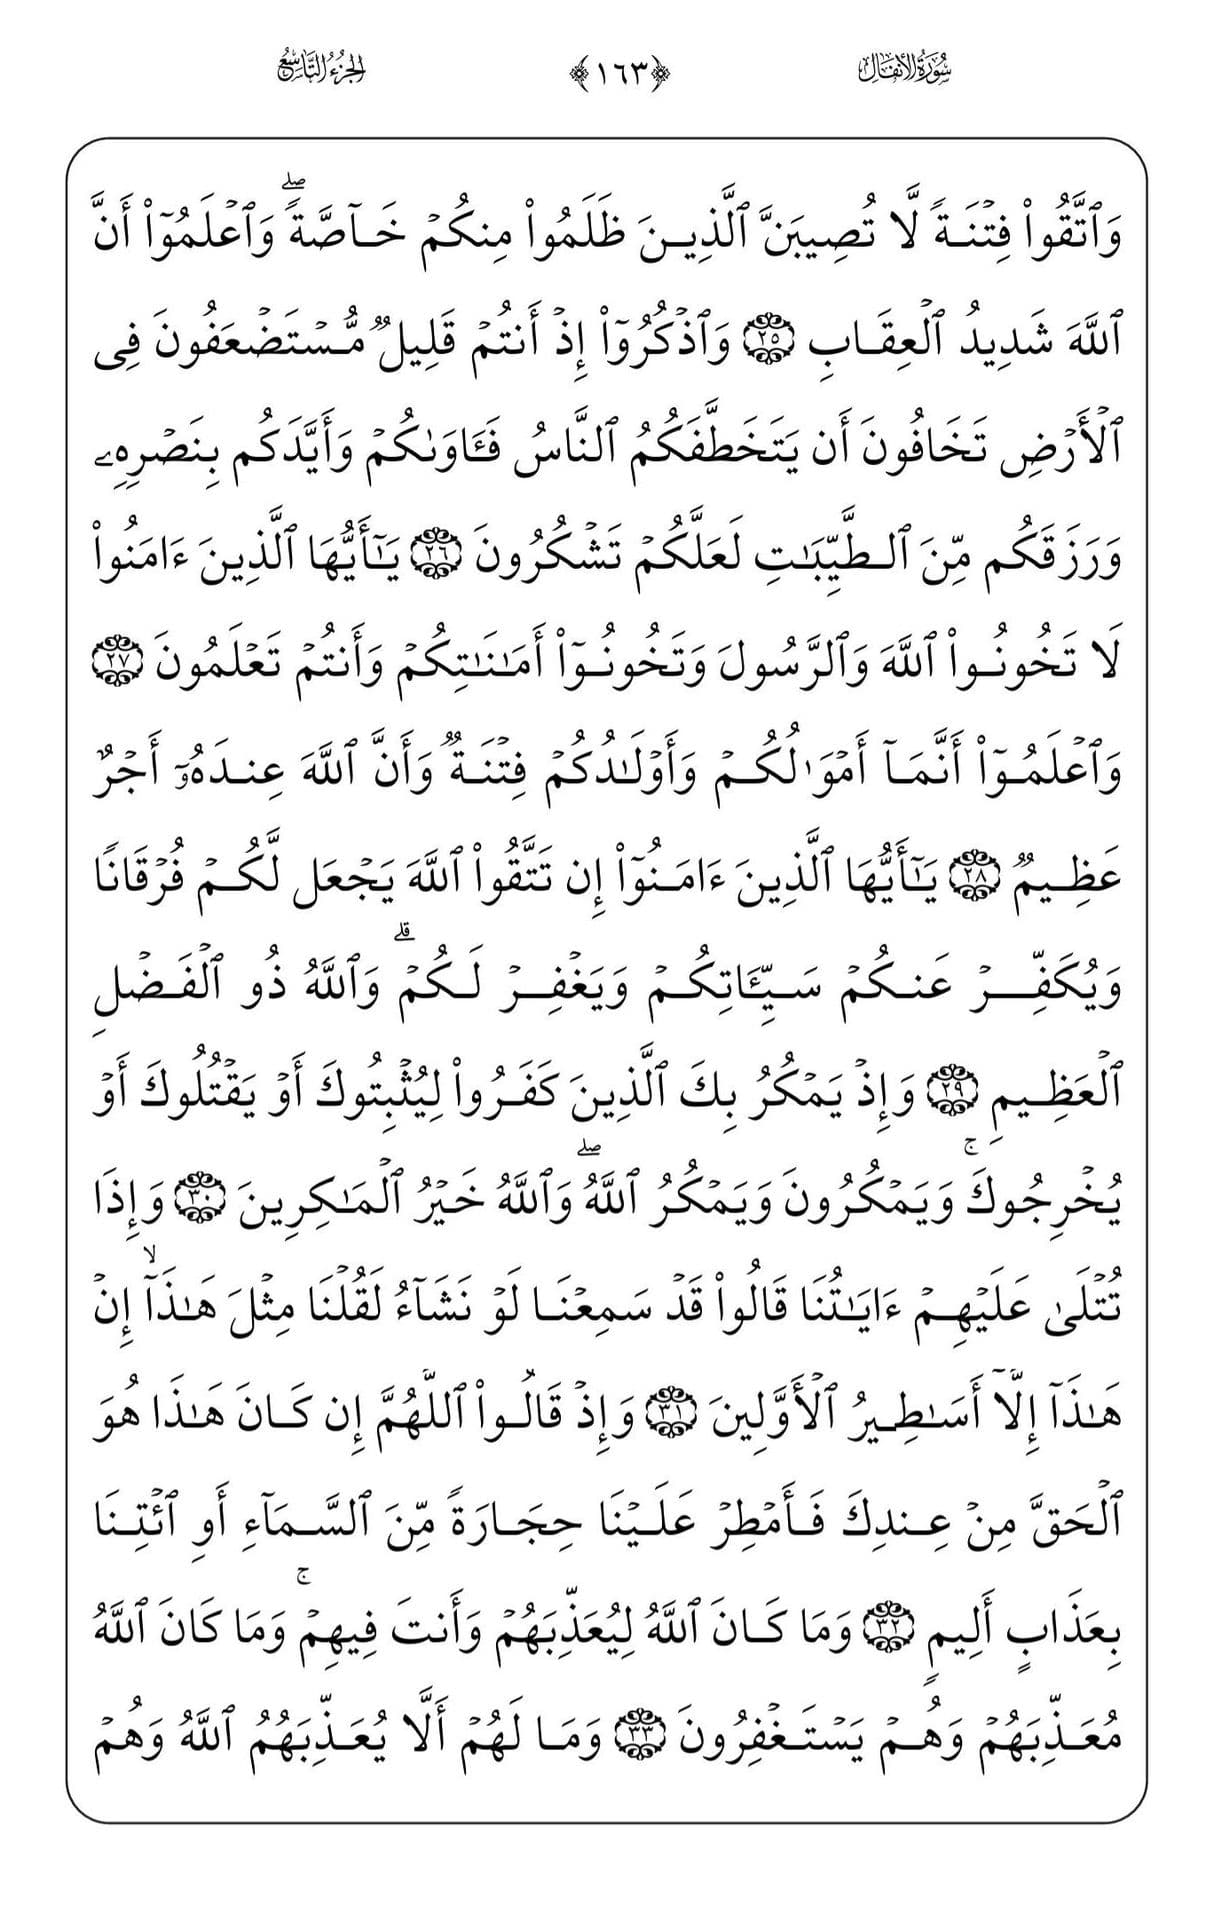 سُورَةُ الأَنفَالِ ﴿١٦٣﴾ الجُزْءُ التَّاسِعُ
وَٱتَّقُوا۟ فِتْنَةً لَّا تُصِيبَنَّ ٱلَّذِينَ ظَلَمُوا۟ مِنكُمْ خَآصَّةً ۖ وَٱعْلَمُوٓا۟ أَنَّ
ٱللَّهَ شَدِيدُ ٱلْعِقَابِ ٢٥ وَٱذْكُرُوٓا۟ إِذْ أَنتُمْ قَلِيلٌ مُّسْتَضْعَفُونَ فِى
ٱلْأَرْضِ تَخَافُونَ أَن يَتَخَطَّفَكُمُ ٱلنَّاسُ فَـَٔاوَىٰكُمْ وَأَيَّدَكُم بِنَصْرِهِۦ
وَرَزَقَكُم مِّنَ ٱلطَّيِّبَـٰتِ لَعَلَّكُمْ تَشْكُرُونَ ٢٦ يَـٰٓأَيُّهَا ٱلَّذِينَ ءَامَنُوا۟
لَا تَخُونُوا۟ ٱللَّهَ وَٱلرَّسُولَ وَتَخُونُوٓا۟ أَمَـٰنَـٰتِكُمْ وَأَنتُمْ تَعْلَمُونَ ٢٧
وَٱعْلَمُوٓا۟ أَنَّمَآ أَمْوَٰلُكُمْ وَأَوْلَـٰدُكُمْ فِتْنَةٌ وَأَنَّ ٱللَّهَ عِندَهُۥٓ أَجْرٌ
عَظِيمٌ ٢٨ يَـٰٓأَيُّهَا ٱلَّذِينَ ءَامَنُوٓا۟ إِن تَتَّقُوا۟ ٱللَّهَ يَجْعَل لَّكُمْ فُرْقَانًا
وَيُكَفِّرْ عَنكُمْ سَيِّـَٔاتِكُمْ وَيَغْفِرْ لَكُمْ ۗ وَٱللَّهُ ذُو ٱلْفَضْلِ
ٱلْعَظِيمِ ٢٩ وَإِذْ يَمْكُرُ بِكَ ٱلَّذِينَ كَفَرُوا۟ لِيُثْبِتُوكَ أَوْ يَقْتُلُوكَ أَوْ
يُخْرِجُوكَ ۚ وَيَمْكُرُونَ وَيَمْكُرُ ٱللَّهُ ۖ وَٱللَّهُ خَيْرُ ٱلْمَـٰكِرِينَ ٣٠ وَإِذَا
تُتْلَىٰ عَلَيْهِمْ ءَايَـٰتُنَا قَالُوا۟ قَدْ سَمِعْنَا لَوْ نَشَآءُ لَقُلْنَا مِثْلَ هَـٰذَآ ۙ إِنْ
هَـٰذَآ إِلَّآ أَسَـٰطِيرُ ٱلْأَوَّلِينَ ٣١ وَإِذْ قَالُوا۟ ٱللَّهُمَّ إِن كَانَ هَـٰذَا هُوَ
ٱلْحَقَّ مِنْ عِندِكَ فَأَمْطِرْ عَلَيْنَا حِجَارَةً مِّنَ ٱلسَّمَآءِ أَوِ ٱئْتِنَا
بِعَذَابٍ أَلِيمٍ ٣٢ وَمَا كَانَ ٱللَّهُ لِيُعَذِّبَهُمْ وَأَنتَ فِيهِمْ ۚ وَمَا كَانَ ٱللَّهُ
مُعَذِّبَهُمْ وَهُمْ يَسْتَغْفِرُونَ ٣٣ وَمَا لَهُمْ أَلَّا يُعَذِّبَهُمُ ٱللَّهُ وَهُمْ